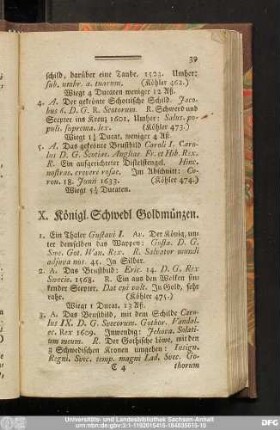 39
schild, darüber eine Taube. 1523. Umher:
sub. umbr. a. tuarum. (Köhler 462.)
Wiegt 4 Ducaten weniger 12 Aß.
4. A. Der gekrönte Schottische Schild. Jaco-
bus 6. D. G. R. Scotorum. R. Schwerd und
Scepter ins Kreuz 1601. Umher: Salus. po-
puli. suprema. lex. (Köhler 473.)
Wiegt 1½ Ducat. weniger 4 Aß.
5. A. Das gekrönte Brustbild Caroli I. Caro-
lus D. G. Scotiæ. Angliæ. Fr. et Hib. Rex.
R. Ein aufgerichteter Distelstengel. Hinc.
nostræ. crevere rosæ. Im Abschnitt: Co-
ron. 18. Junii 1633. (Köhler 474.)
Wiegt Ducaten.
X. Königl. Schwed Goldmünzen.
1. Ein Thaler Gustavi I. Av. Der König, un-
ter demselben das Wappen: Gusta. D. G.
Swe. Got. Wan. Rex. R. Salvator mundi
adjuva nos. 45. In Silber.
2. A. Das Brustbild: Eric. 14. D. G. Rex
Suecie. 1568. R. Ein aus den Wolken sin-
kender Scepter. Dat cui vult. In Gold, sehr
rahr. (Köhler 475.)
Wiegt 1 Ducat. 13 Aß.
3. A. Das Brustbild, mit dem Schilde Caro-
lus IX. D. G. Svecorum. Gothor. Vandal.
ec. Rex 1609. Inwendig: Jehova. Solati-
um meum. R. Der Gothische Löwe, mit den
3 Schwedischen Kronen umgeben: Insign.
Regni. Svec. temp. magni Lad. Svec. Go-
C 4 thorum
Universitäts- und Landesbibliothek Sachsen-Anhalt